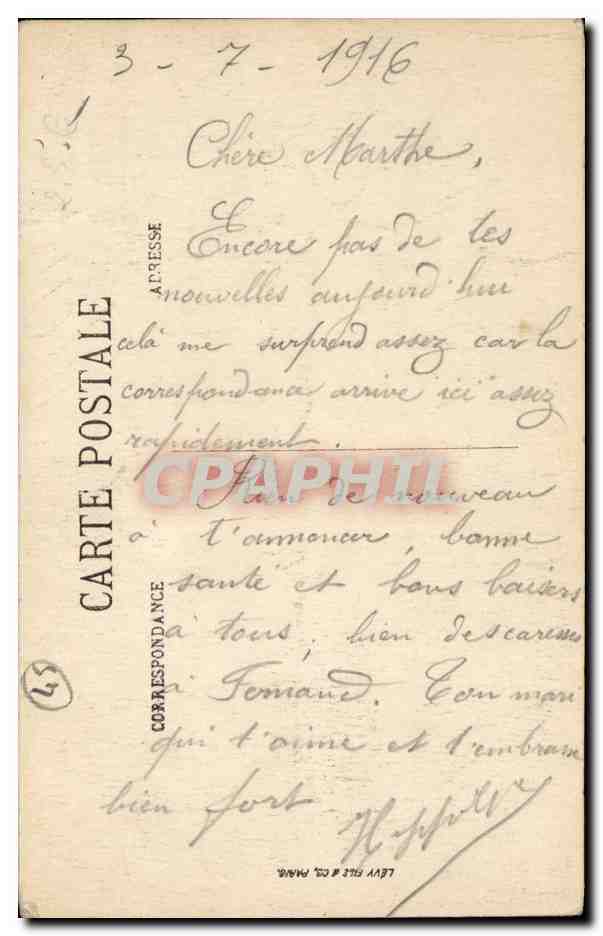 3 - 7 - 1916
Chère Marthe,
Encore pas de tes
nouvelles aujourd'hui
celà me surprend assez car la
correspondance arrive ici assez
rapidement.
Rien de nouveau
à t'annoncer, bonne
santé et bons baisers
à tous, bien des caresses
à Fernand. Ton mari
qui t'aime et t'embrasse
bien fort
Hippolyte
CARTE POSTALE
ADRESSE
CORRESPONDANCE
45
CPAPHIL
LÉVY FILS & CO, PARIS.